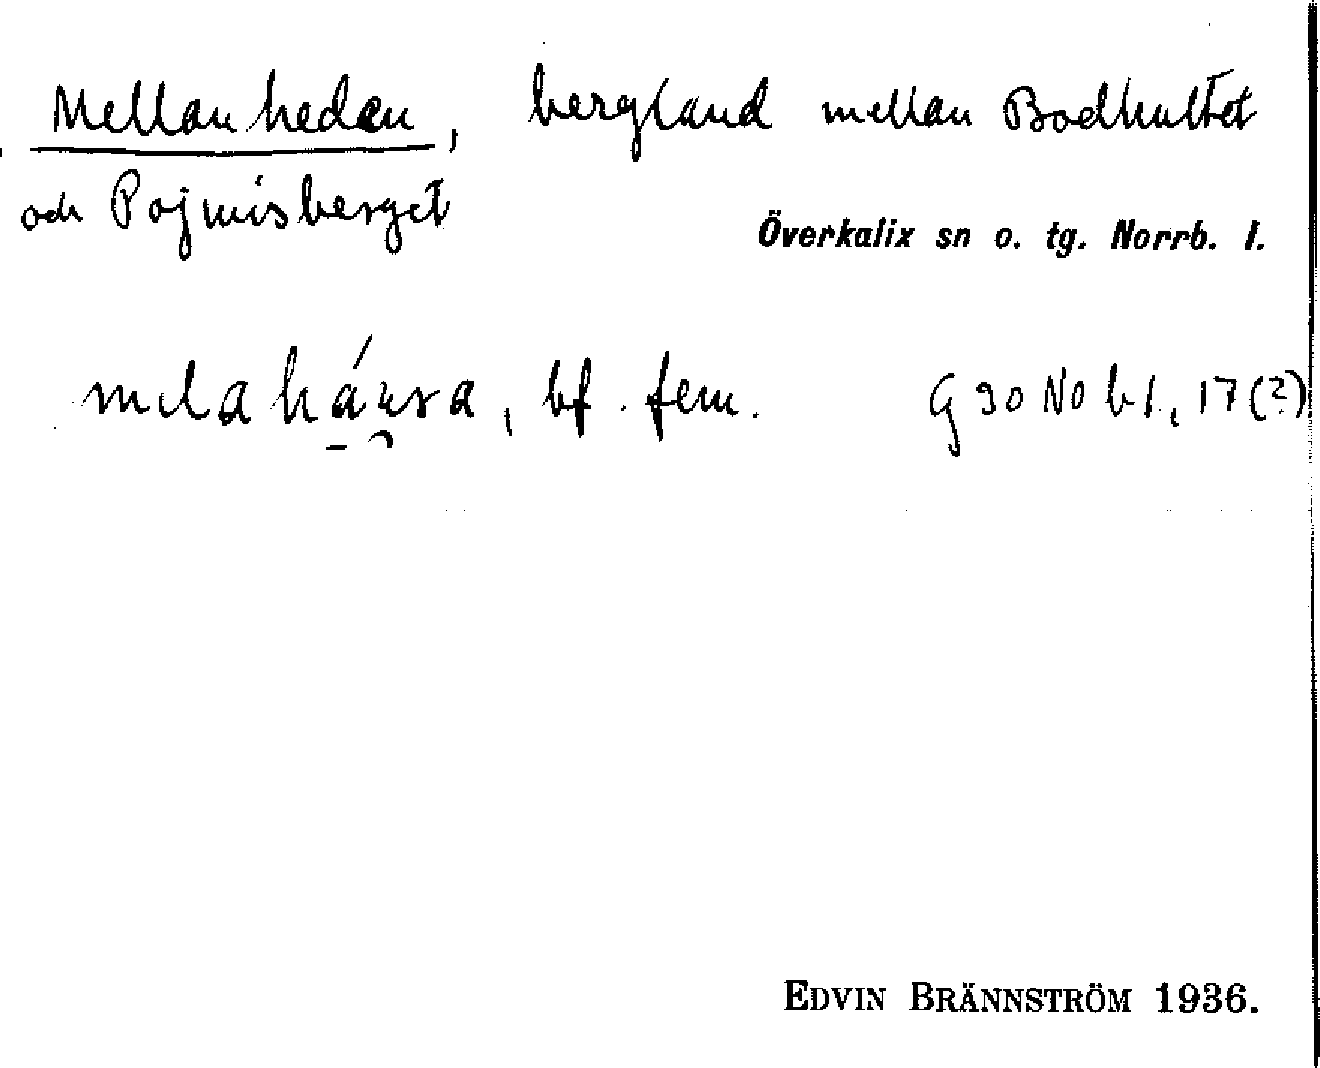 Mellanheden, bergland mellan Bodhultet
och Pojmisberget
Överkalix sn o. tg. Norrb. l.
bf. fem. G 30 No bl., 17(?)
EDVIN BRÄNNSTRÖM 1936.